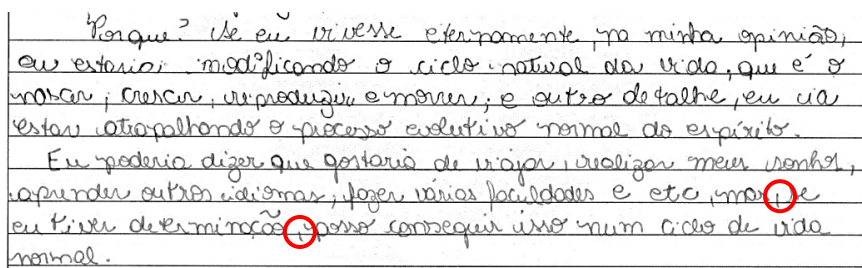 Porque? Se eu vivesse eternamente, na minha opinião,
eu estaria, modificando o ciclo natural da vida, que é o
nascer, crescer, reproduzir e morrer; e outro detalhe, eu ia
estar atrapalhando o processo evolutivo normal do espírito.
Eu poderia dizer que gostaria de viajar, realizar meus sonhos,
aprender outros idiomas, fazer várias faculdades e etc, mas, se
eu tiver determinação, posso conseguir isso num ciclo de vida
normal.